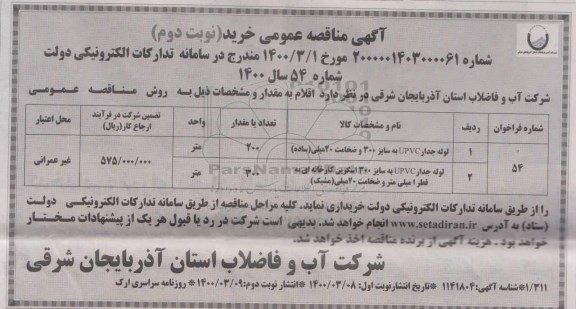 آگهی مناقصه عمومی خرید(نوبت دوم)
شماره ۲۰۰۰۰۰۱۴۰۳۰۰۰۰۶۱ مورخ ۱۴۰۰/۳/۱ مندرج در سامانه تدارکات الکترونیکی دولت
شماره ۵۴ سال ۱۴۰۰
شرکت آب و فاضلاب استان آذربایجان شرقی در نظر دارد اقلام به مقدار و مشخصات ذیل به روش مناقصه عمومی
شماره فراخوان ردیف نام و مشخصات کالا تعداد یا مقدار واحد تضمین شرکت در فرآیند ارجاع کار(ریال) محل اعتبار
۵۴ ۱ لوله جدار UPVC به سایز ۳۰۰ و ضخامت ۲۰میلی(ساده) ۲۰۰ متر ۵۷۵/۰۰۰/۰۰۰ غیر عمرانی
۲ لوله جدار UPVC به سایز ۳۰۰ اسکرین کارخانه ای به قطر ۱ میلی متر و ضخامت ۲۰میلی(مشبک) متر
را از طریق سامانه تدارکات الکترونیکی دولت خریداری نماید. کلیه مراحل مناقصه از طریق سامانه تدارکات الکترونیکی دولت
(ستاد) به آدرس www.setadiran.ir انجام خواهد شد. بدیهی است شرکت در رد یا قبول هر یک از پیشنهادات مختار
خواهد بود . هزینه آگهی از برنده مناقصه اخذ خواهد شد.
شرکت آب و فاضلاب استان آذربایجان شرقی
۱/۳۱۱*شناسه آگهی:۱۱۴۱۸۰۴ *تاریخ انتشارنوبت اول: ۱۴۰۰/۰۳/۰۸ *انتشار نوبت دوم:۱۴۰۰/۰۳/۰۹ *روزنامه سراسری ارک